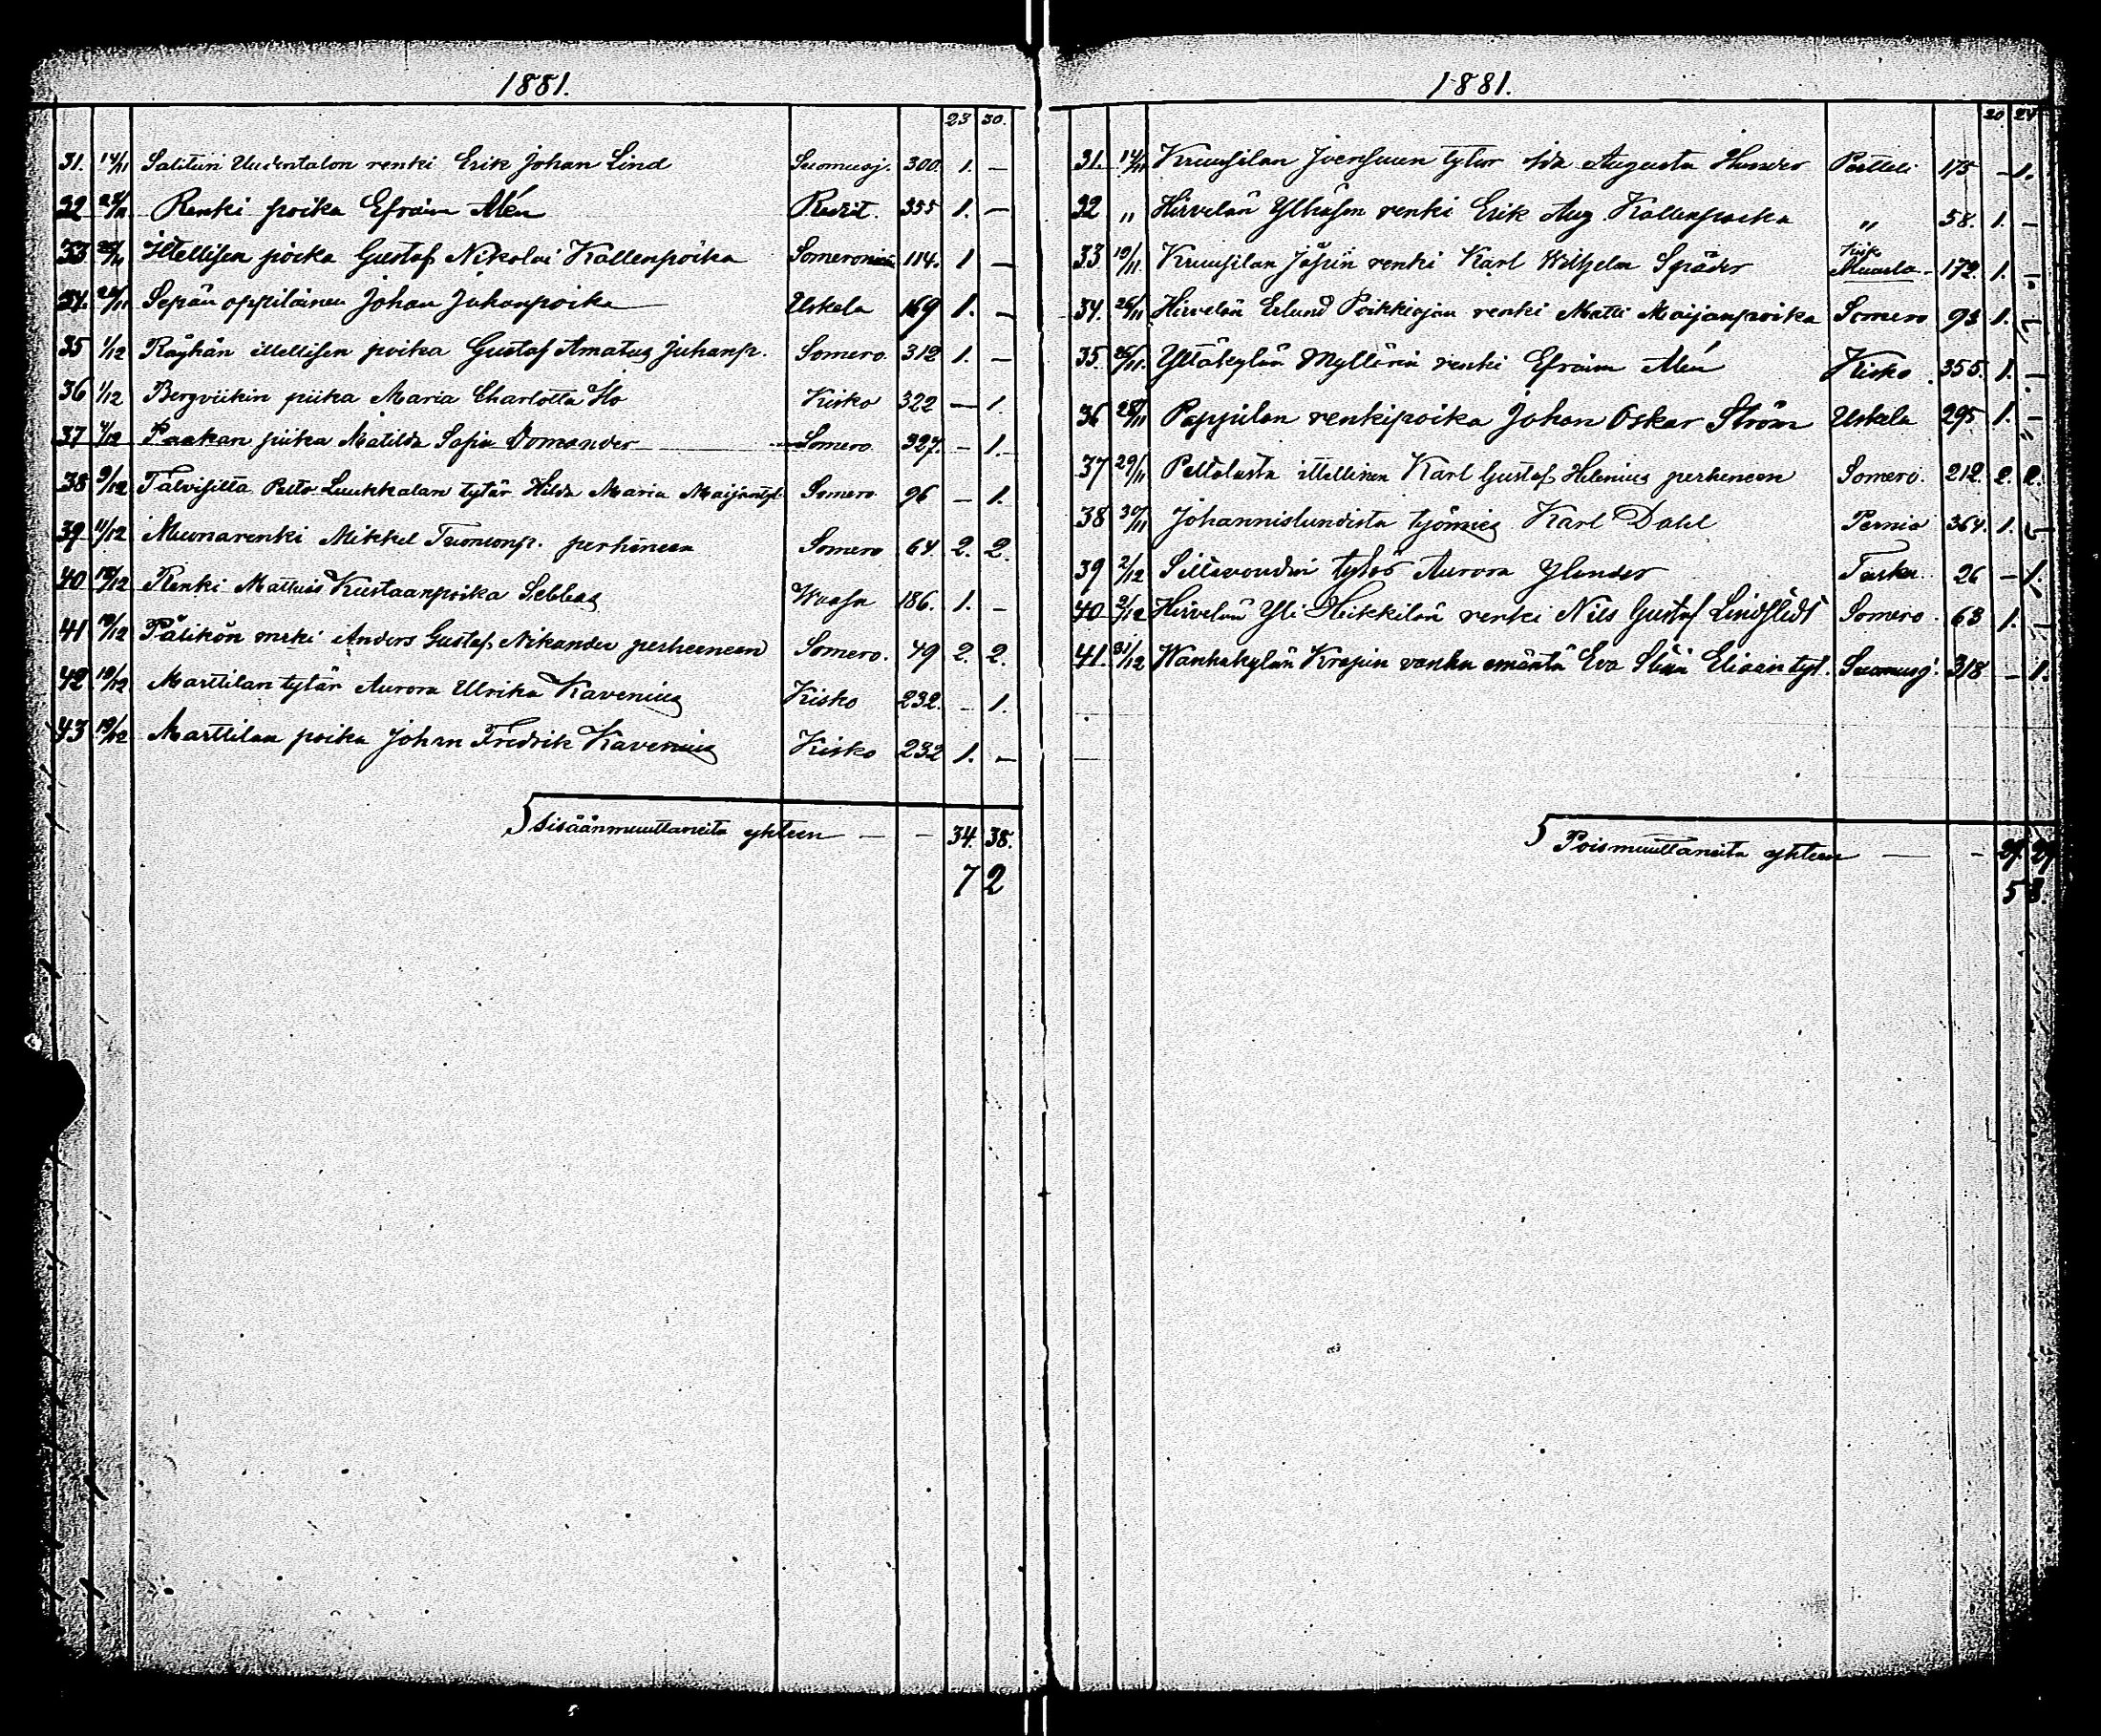 1881.
23 30.
31. 14/11 Salittin Uudentalon renki Erik Johan Lind Suomusj. 300. 1. —
32 Renki poika Efraim Alén 355 1. —
33 Itellisen poika Gustaf Nikolai Kallenpoika Someroniemi 114. 1 —
34. Sepän oppilainen Johan Juhanpoika Uskela 169 1. —
35 1/12 Räyhän itellisen poika Gustaf Amatus Juhanp. Somero. 312 1. —
36 1/12 Bergviikin piika Maria Charlotta Ho Kisko 322 — 1.
37 Paakan piika Matilda Sofia Domander Somero. 327. — 1.
38 9/12 Talvisilta Pelto Luukkalan tytär Hilda Maria Maijantyt. Somero 96 — 1.
39 11/12 Muonarenki Mikkel Tuomonp. perheneen Somero 64. 2. 2.
40 Renki Matthias Kustaanpoika Sebbas Waasa 186. 1. —
41 19/12 Pälikön renki Anders Gustaf Nikander perheeneen Somero. 49 2. 2.
42 19/12 Marttilan tytär Aurora Ulrika Kavenius Kisko 232. — 1.
43 19/12 Marttilan poika Johan Fredrik Kavenius Kisko 232 1. —
Sisäänmuuttaneita yhteen — — 34. 38.
72
1881.
20 24
31. 14/11 Kruusilan Joensuun tytär Ida Augusta Hunder Pertteli 175 — 1.
32 " Hirvelän Ylhäsen renki Erik Aug. Kallenpoika " 58. 1. —
33 19/11 Kruusilan Jäpin renki Karl Wilhelm Späder Muurla 172. 1. —
34. 26/11 Hirvelän Erlund Poikkiojan renki Matti Maijanpoika Somero 93 1. —
35. 26/11. Yltäkylän Myllärin renki Efraim Alén Kisko 355. 1. —
36 28/11 Pappilan renkipoika Johan Oskar Ström Uskela 295 1. —
37 29/11 Peltolasta itellinen Karl Gustaf Helenius perheneen Somero. 212. 2. 2.
38 30/11 Johannislundista työmies Karl Dahl Perniö 364. 1. —
39 2/12 Siltavoudin tytär Aurora Ylander Turku 26 — 1.
40 9/12 Hirvelän Yli Heikkilän renki Nils Gustaf Lindstedt Somero 63 1. —
41. 31/12 Wanhakylän Krapin vanha emäntä Eva Stiina Eliaan tyt. Suomusj. 318 — 1.
Poismuuttaneita yhteen — — 29. 29
58.